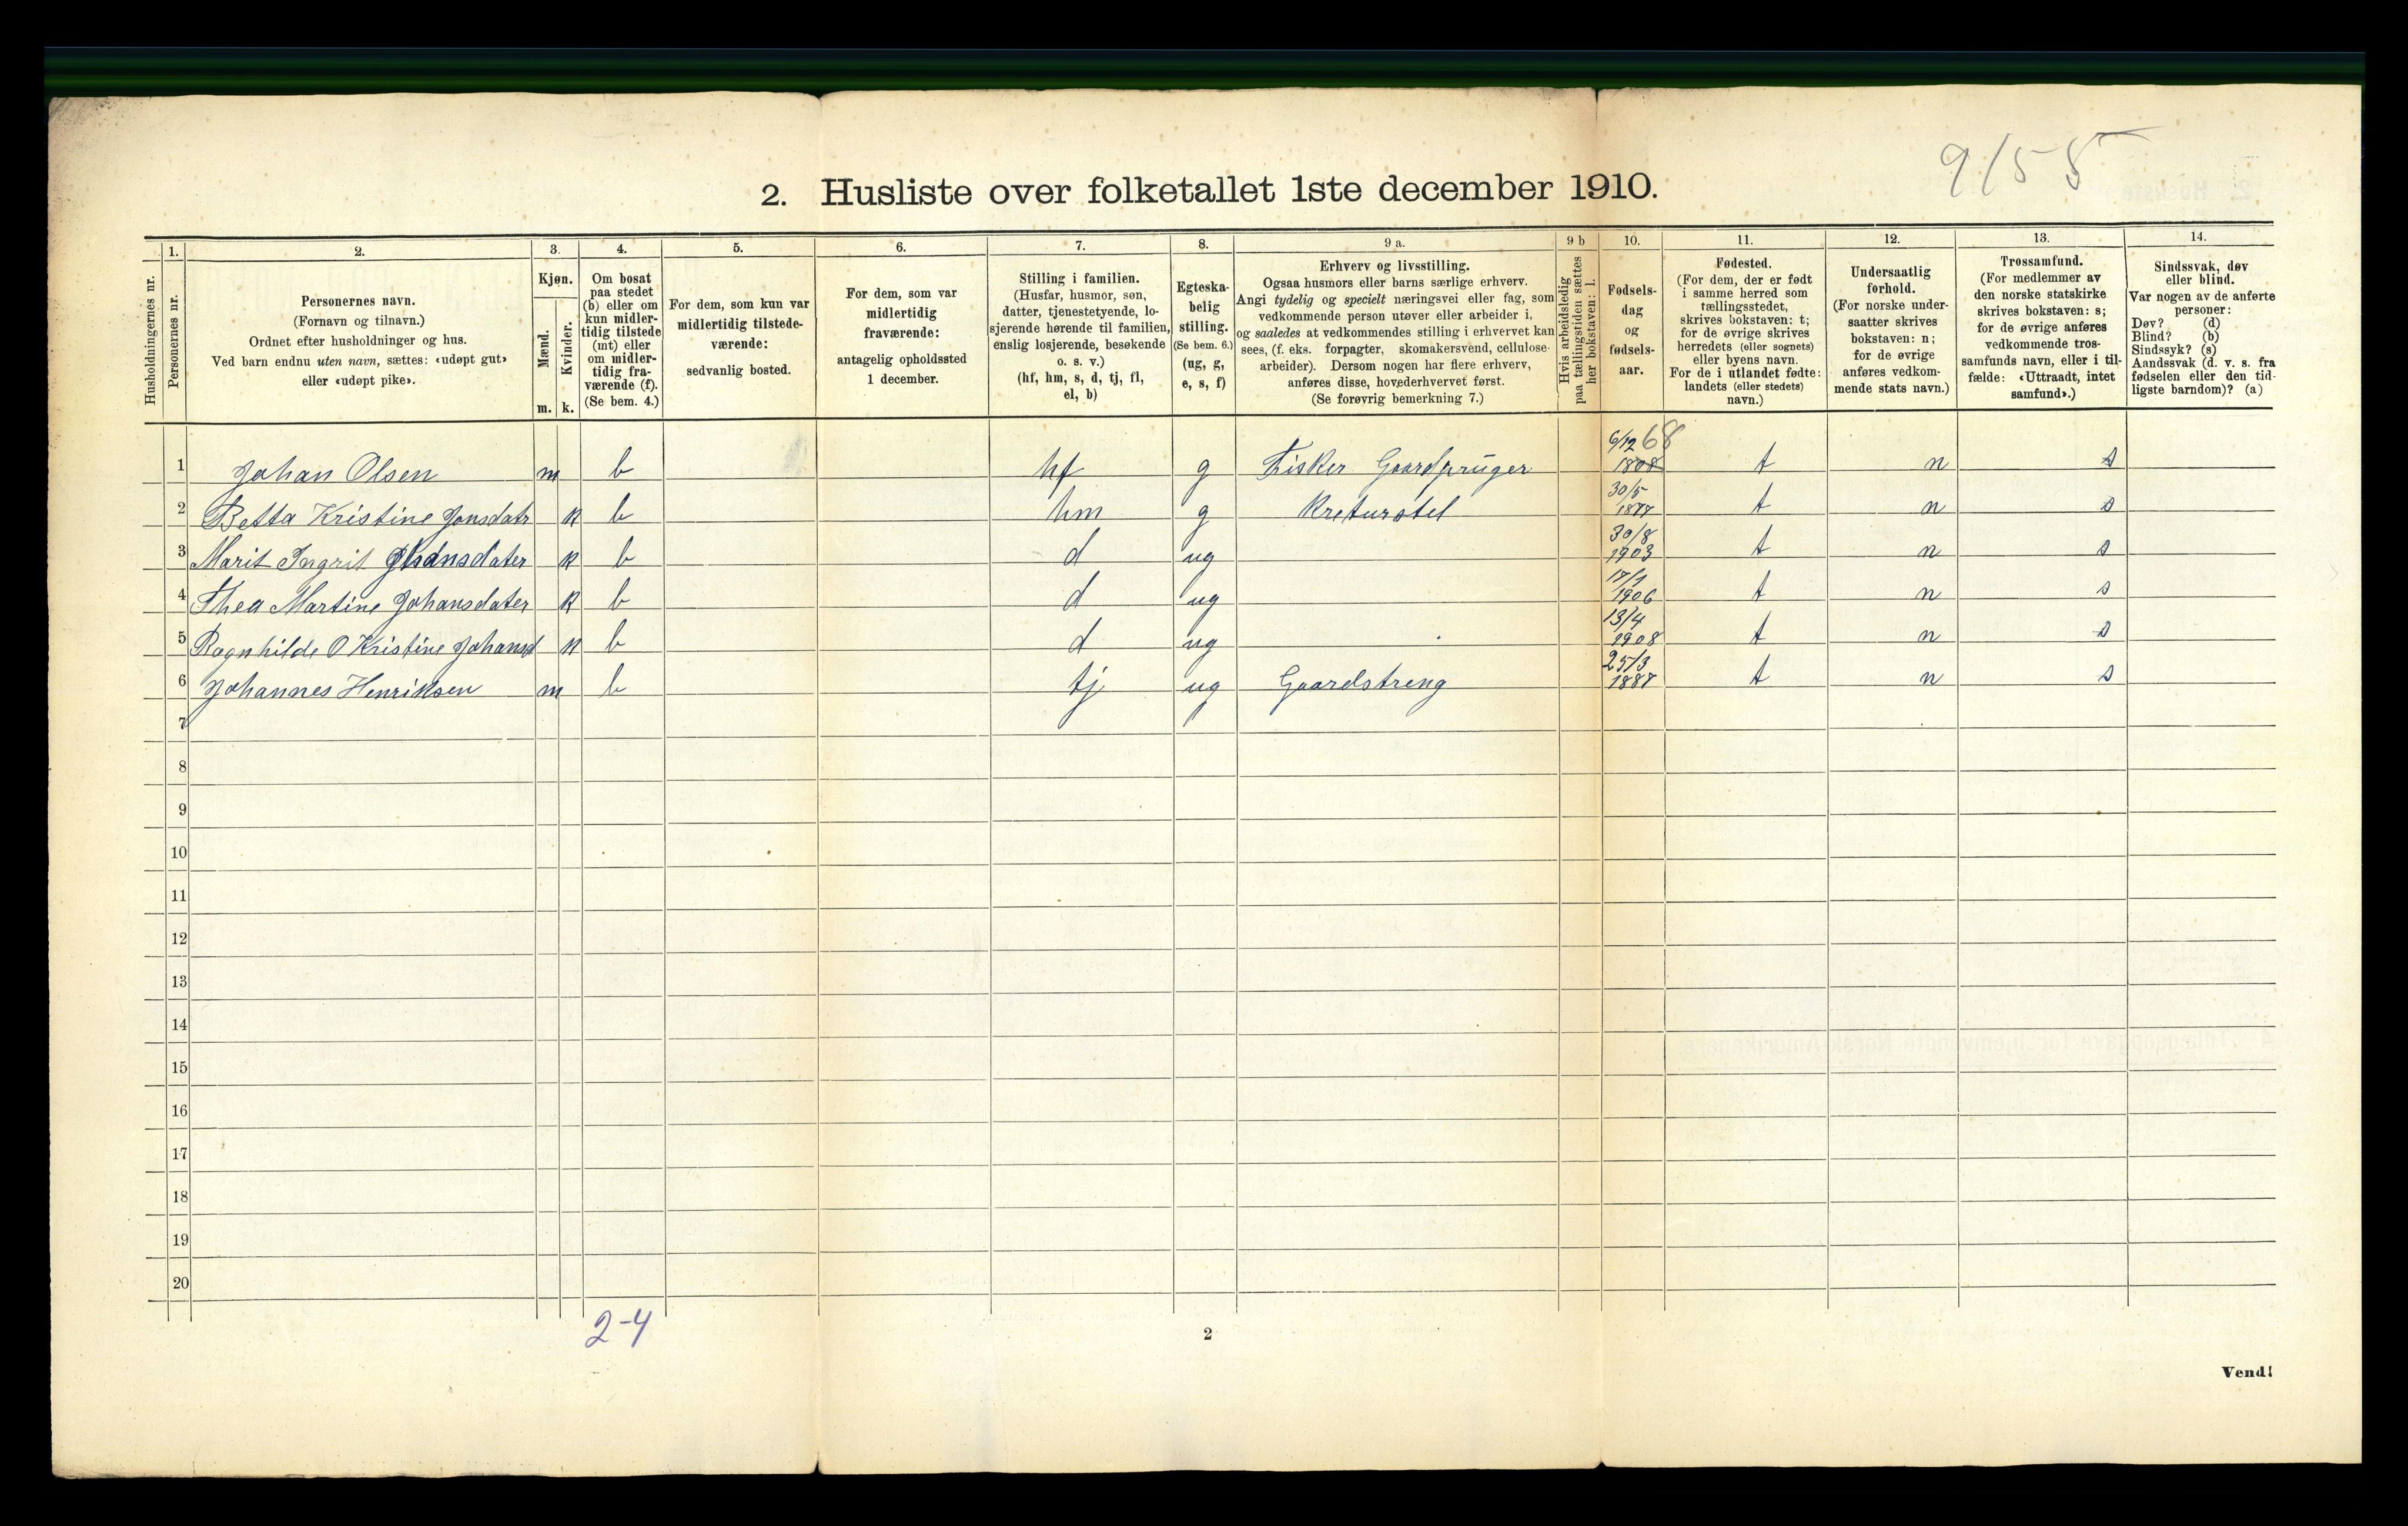 9/55
2. Husliste over folketallet 1ste december 1910.
Husholdningernes nr.
1.
Personernes nr.
2.
Personernes navn.
(Fornavn og tilnavn.)
Ordnet efter husholdninger og hus.
Ved barn endnu uten navn, sættes: «udøpt gut»
eller «udøpt pike».
3.
Kjøn.
Mænd.
Kvinder.
m. k.
4.
Om bosat
paa stedet
(b) eller om
kun midler-
tidig tilstede
(mt) eller
om midler-
tidig fra-
værende (f).
(Se bem. 4.)
5.
For dem, som kun var
midlertidig tilstede-
værende:
sedvanlig bosted.
6.
For dem, som var
midlertidig
fraværende:
antagelig opholdssted
1 december.
7.
Stilling i familien.
(Husfar, husmor, søn,
datter, tjenestetyende, lo-
sjerende hørende til familien,
enslig losjerende, besøkende
o. s. v.)
(hf, hm, s, d, tj, fl,
el, b)
8.
Egteska-
belig
stilling.
(Se bem. 6.)
(ug, g,
e, s, f)
9 a.
Erhverv og livsstilling.
Ogsaa husmors eller barns særlige erhverv.
Angi tydelig og specielt næringsvei eller fag, som
vedkommende person utøver eller arbeider i,
og saaledes at vedkommendes stilling i erhvervet kan
sees, (f. eks. forpagter, skomakersvend, cellulose-
arbeider). Dersom nogen har flere erhverv,
anføres disse, hovederhvervet først.
(Se forøvrig bemerkning 7.)
9 b
Hvis arbeidsledig
paa tællingstiden sættes
her bokstaven: l.
10.
Fødsels-
dag
og
fødsels-
aar.
11.
Fødested.
(For dem, der er født
i samme herred som
tællingsstedet,
skrives bokstaven: t;
for de øvrige skrives
herredets (eller sognets)
eller byens navn.
For de i utlandet fødte:
landets (eller stedets)
navn.)
12.
Undersaatlig
forhold.
(For norske under-
saatter skrives
bokstaven: n;
for de øvrige
anføres vedkom-
mende stats navn.)
13.
Trossamfund.
(For medlemmer av
den norske statskirke
skrives bokstaven: s;
for de øvrige anføres
vedkommende tros-
samfunds navn, eller i til-
fælde: «Uttraadt, intet
samfund».)
14.
Sindssvak, døv
eller blind.
Var nogen av de anførte
personer:
Døv? (d)
Blind? (b)
Sindssyk? (s)
Aandssvak (d. v. s. fra
fødselen eller den tid-
ligste barndom)? (a)
1 Johan Olsen m b hf g Fisker Gaardpruger 6/12 68 1808 t n s
2 Betta Kristine Jonsdatr k b hm g Kreturstel 30/5 t n s
3 Marit Ingrit k b d ug 30/8 1903 t n s
4 Thea Martine Johansdater k b d ug 17/1 1906 t n s
5 Ragnhilde O Kristine Johansd k b d ug 13/4 1908 t n s
6 Johannes Henriksen m b tj ug Gaardstreng 25/3 1887 t n s
7
8
9
10
11
12
13
14
15
16
17
18
19
20
2-4
2
Vend!